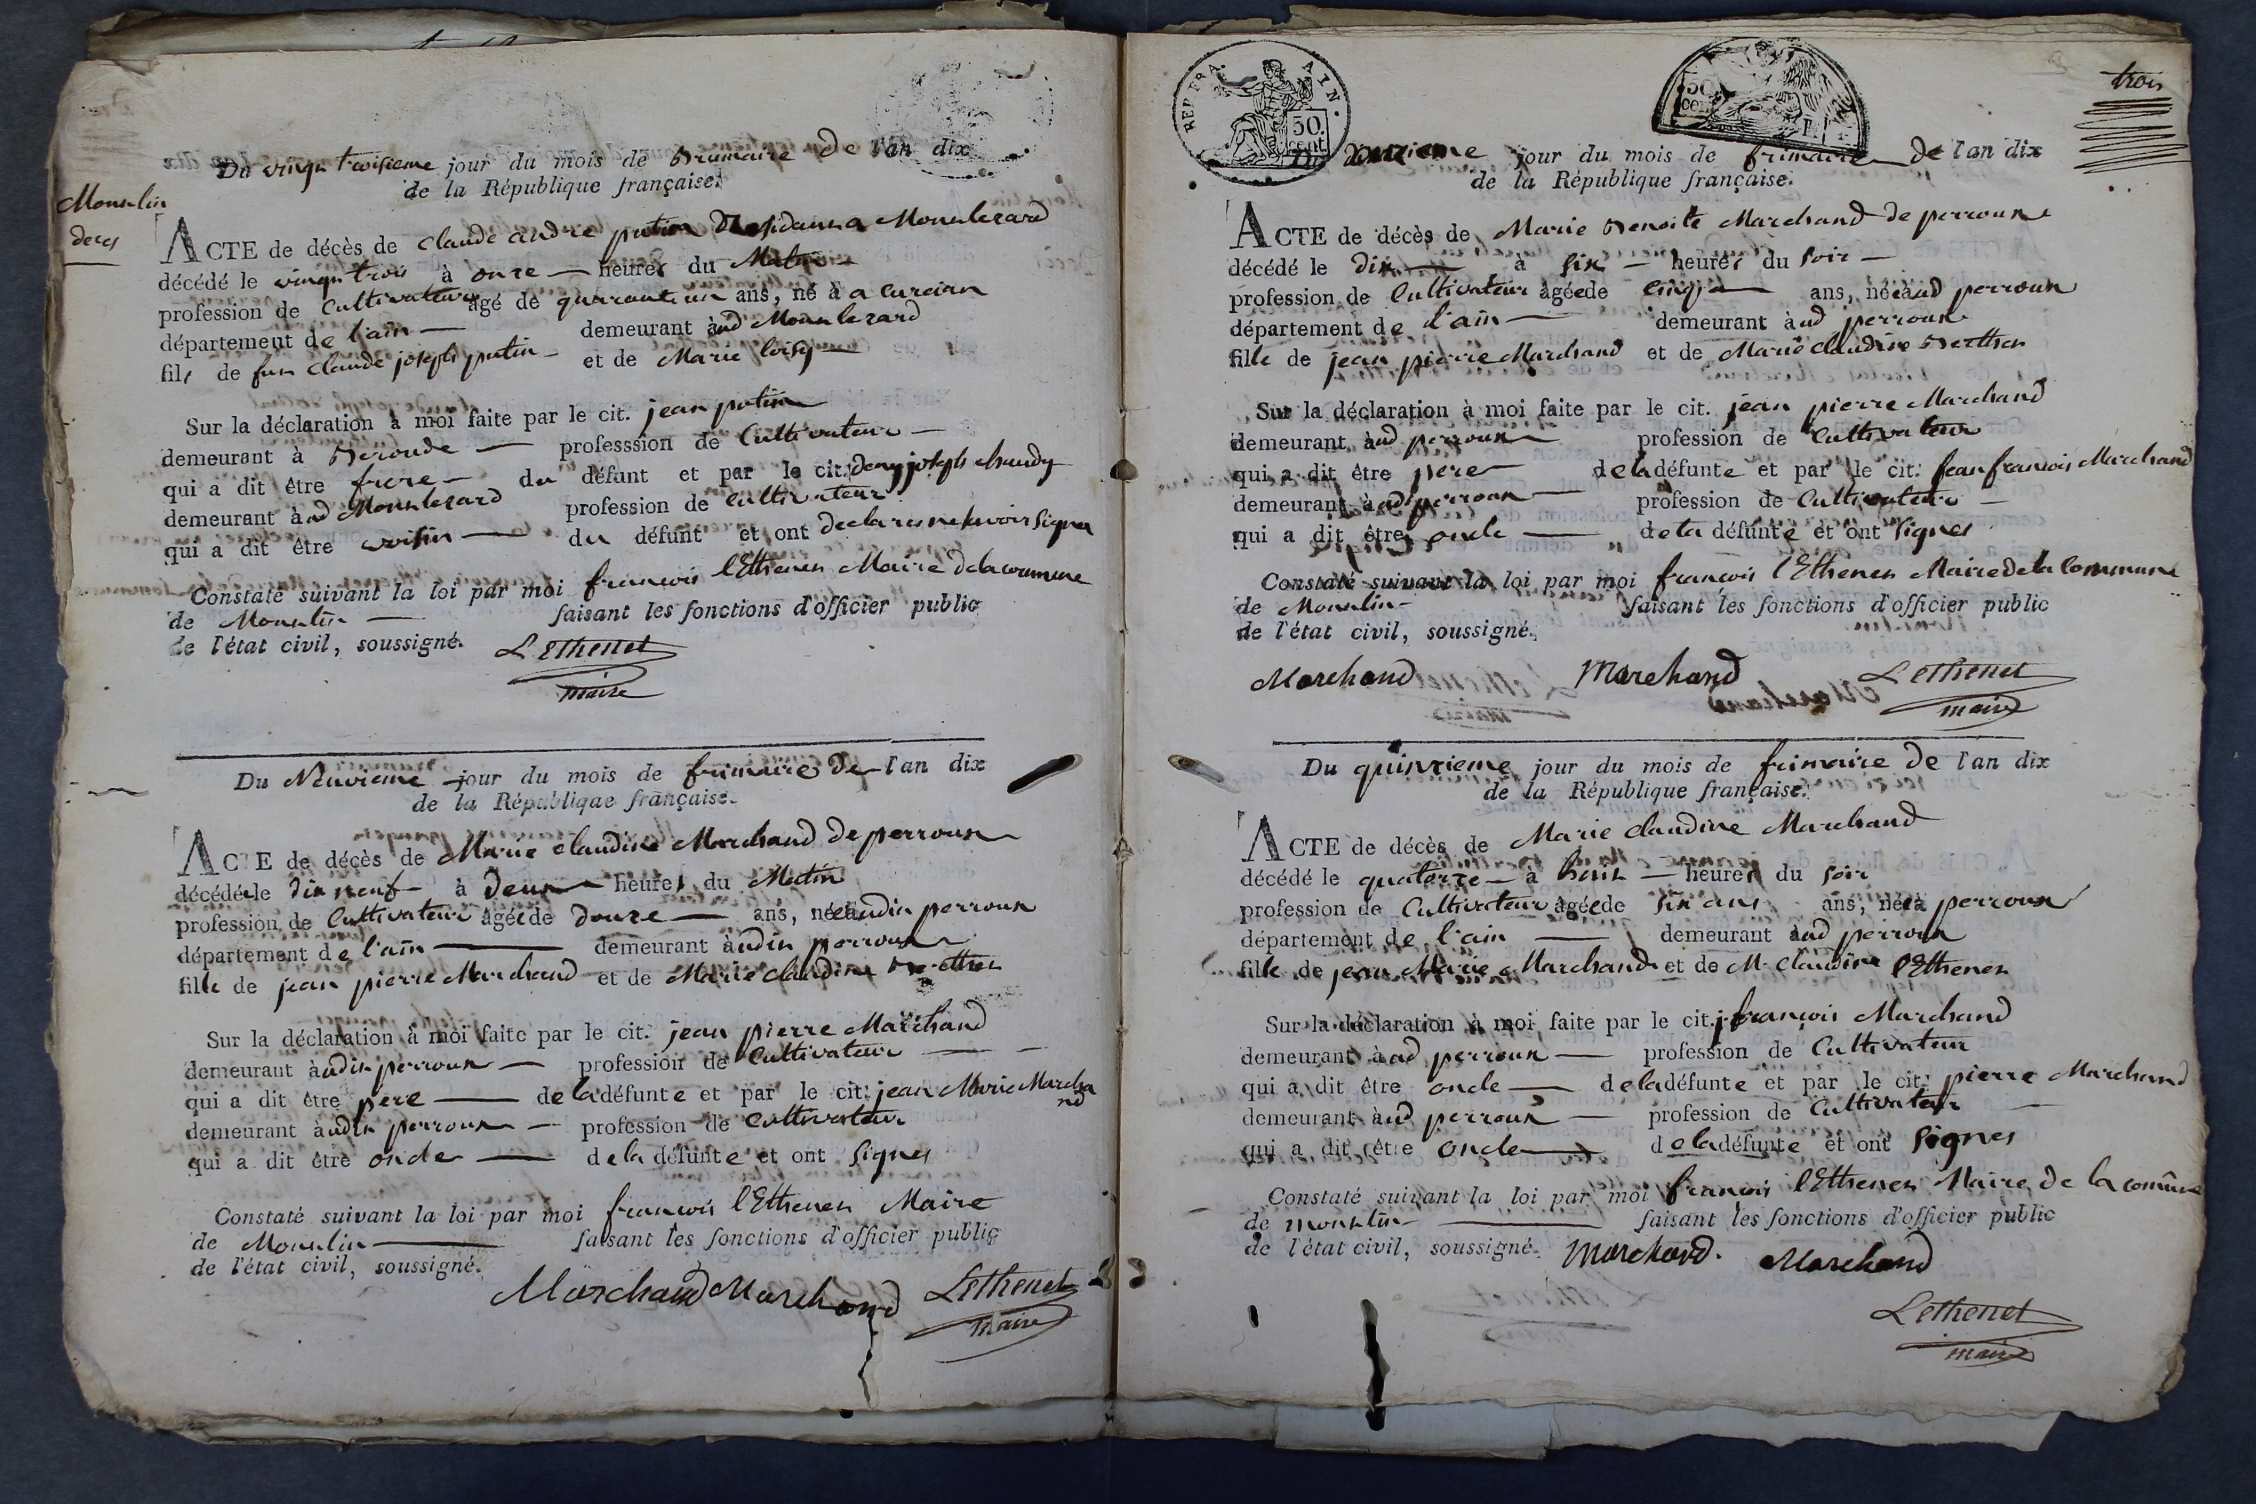 Monulin
deces
Du vingt troisieme jour du mois de Brumaire de l'an dix
de la République française.
ACTE de décès de Claude andre putin a Monulezard
décédé le vingt trois à onze heures du Matin
profession de Cultivateur âgé de quarante un ans, né à a curcian
département de l'ain demeurant à ud Monulezard
fils de fun Claude joseph putin et de Marie loisy
Sur la déclaration à moi faite par le cit. jean putin
demeurant à professsion de Cultivateur
qui a dit être frere du défunt et par le cit. deny joseph chaudy
demeurant à ud Monulezard profession de Cultivateur
qui a dit être voisin du défunt et ont declares ne savoir signer
Constaté suivant la loi par moi françois l'Ethenet Maire de la commune
de Monulin faisant les fonctions d'officier public
de l'état civil, soussigné. L'Ethenet
maire
Du Neuvieme jour du mois de frimaire de l'an dix
de la République française.
ACTE de décès de Marie Claudine Marchand de perroux
décédée le dix neuf à deux heures du Matin
profession de Cultivateur âgée de douze ans, née audit perroux
département de l'ain demeurant à udit perroux
fille de jean pierre Marchand et de Marie Claudine Berthet
Sur la déclaration à moi faite par le cit. jean pierre Marchand
demeurant à udit perroux profession de Cultivateur
qui a dit être pere de la défunte et par le cit. jean Marie Marcha
nd
demeurant à udit perroux profession de Cultivateur
qui a dit être oncle de la défunte et ont signes
Constaté suivant la loi par moi françois l'Ethenet Maire
de Monulin faisant les fonctions d'officier public
de l'état civil, soussigné.
Marchand Marchand Lethenet
maire
REP. FRA. AIN.
50
cent.
50
cen
trois
Du jour du mois de frimaire de l'an dix
de la République française.
ACTE de décès de Marie Benoite Marchand de perroux
décédé le dix à six heures du soir
profession de Cultivateur âgée de cinq ans, née à ud perroux
département de l'ain demeurant à ud perroux
fille de jean pierre Marchand et de Marie Claudine Berthet
Sur la déclaration à moi faite par le cit. jean pierre Marchand
demeurant à ud perroux profession de Cultivateur
qui a dit être pere de la défunte et par le cit. jean françois Marchand
demeurant à ud perroux profession de Cultivateur
qui a dit être oncle de la défunte et ont signes
Constaté suivant la loi par moi françois l'Ethenet Maire de la Commune
de Monulin faisant les fonctions d'officier public
de l'état civil, soussigné.
Marchand Marchand Lethenet
maire
Du quinzieme jour du mois de frimaire de l'an dix
de la République française.
ACTE de décès de Marie Claudine Marchand
décédé le quatorze à heures du soir
profession de Cultivateur âgée de six ans ans, née à perroux
département de l'ain demeurant à ud perroux
fille de jean Marie Marchand et de M. Claudine l'Ethenet
Sur la déclaration à moi faite par le cit. françois Marchand
demeurant à ud perroux profession de Cultivateur
qui a dit être oncle de la défunte et par le cit. pierre Marchand
demeurant à ud perroux profession de Cultivateur
qui a dit être oncle de la défunte et ont signes
Constaté suivant la loi par moi françois l'Ethenet Maire de la comûne
de monulin faisant les fonctions d'officier public
de l'état civil, soussigné. Marchand. Marchand
Lethenet
maire